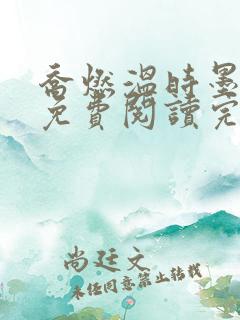 乔燃温时墨
免費閱讀完
尚廷文
未经同意禁止转载